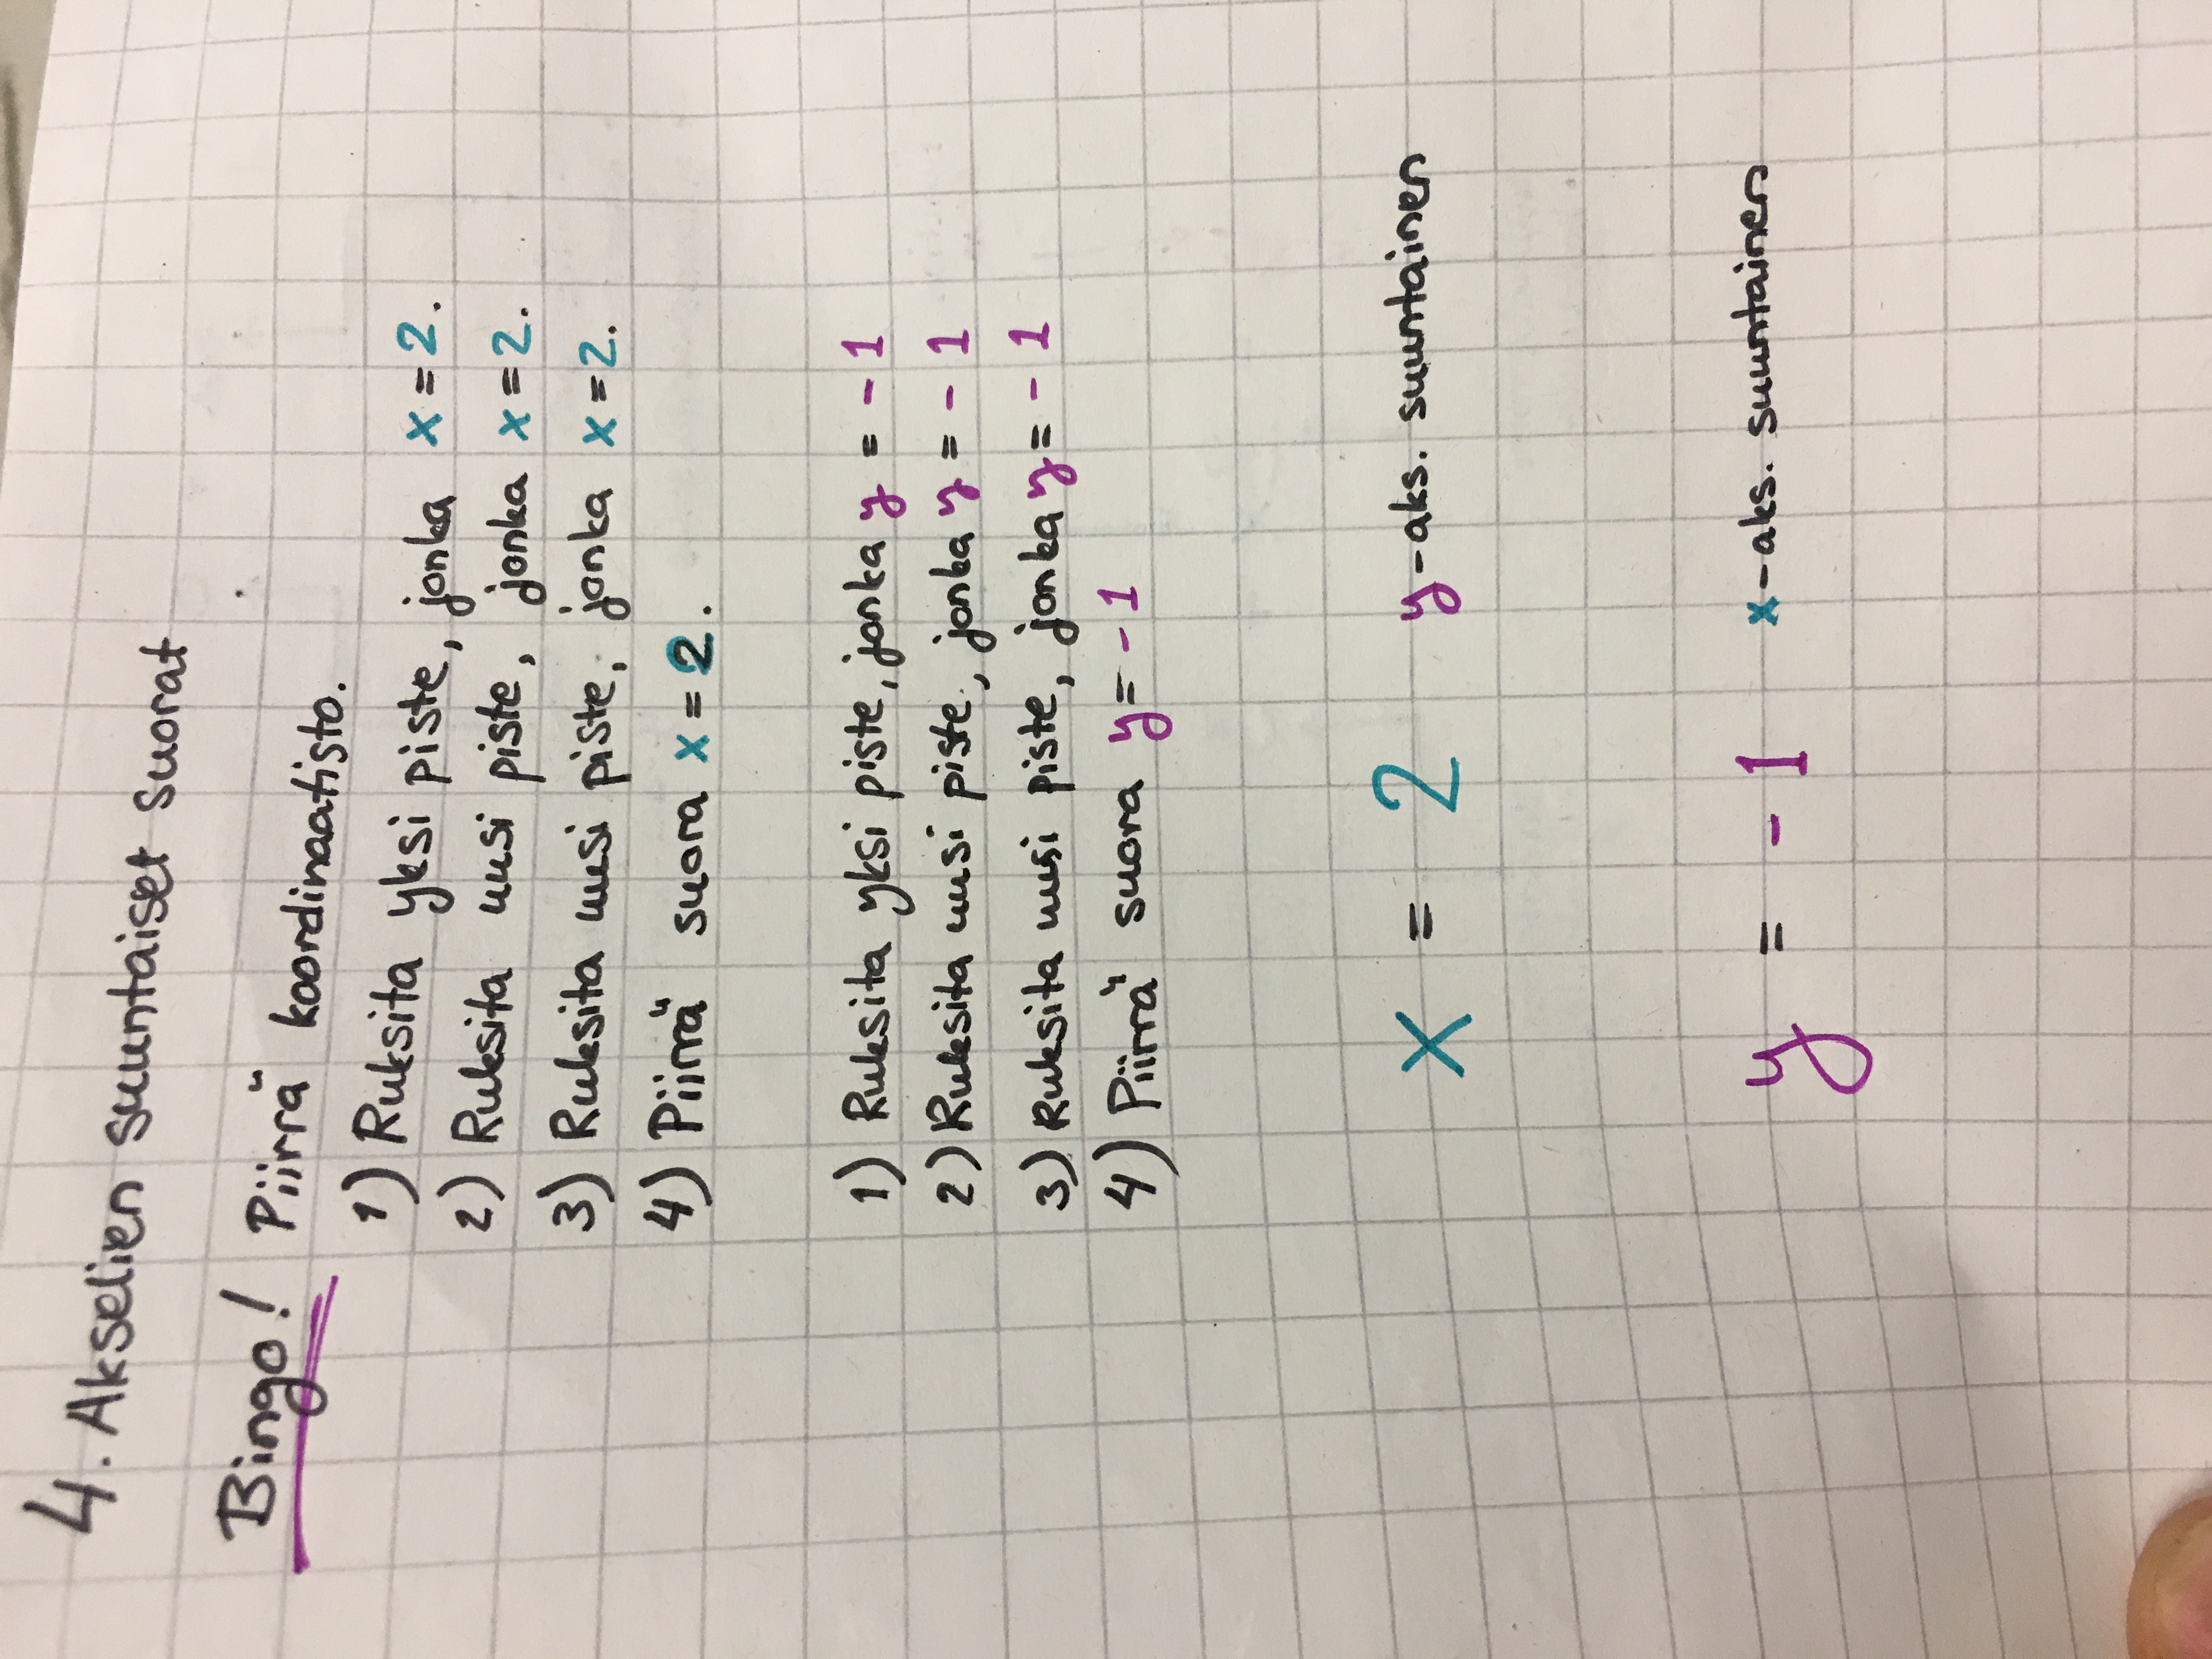 4. Akselien suuntaiset suorat
Bingo! Piirrä koordinaatisto.
1) Ruksita yksi piste, jonka x = 2.
2) Ruksita uusi piste, jonka x = 2.
3) Ruksita uusi piste, jonka x = 2.
4) Piirrä suora x = 2.
1) Ruksita yksi piste, jonka y = - 1
2) Ruksita uusi piste, jonka y = - 1
3) Ruksita uusi piste, jonka y = - 1
4) Piirrä suora y = - 1
x = 2 y-aks. suuntainen
y = - 1 x-aks. suuntainen